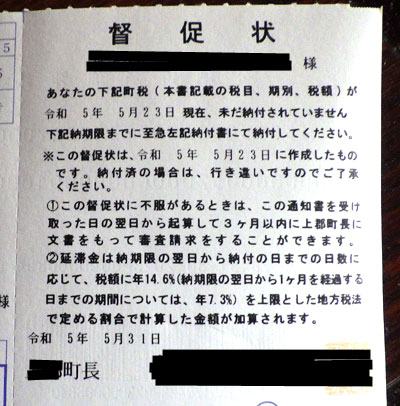 督促状
様
あなたの下記町税(本書記載の税目、期別、税額)が
令和 5年 5月23日 現在、未だ納付されていません
下記納期限までに至急左記納付書にて納付してください。
※この督促状は、令和 5年 5月23日に作成したもの
です。納付済の場合は、行き違いですのでご了承
ください。
①この督促状に不服があるときは、この通知書を受け
取った日の翌日から起算して3ヶ月以内に上郡町長に
文書をもって審査請求をすることができます。
②延滞金は納期限の翌日から納付の日までの日数に
応じて、税額に年14.6%(納期限の翌日から1ケ月を経過する
日までの期間については、年7.3%)を上限とした地方税法
で定める割合で計算した金額が加算されます。
令和 5年 5月31日
町長
5
5
様